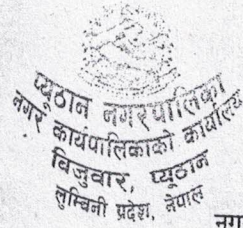 प्यूठान नगरपालिका
नगर कार्यपालिकाको कार्यालय
विजुवार, प्यूठान
लुम्बिनी प्रदेश, नेपाल
नग